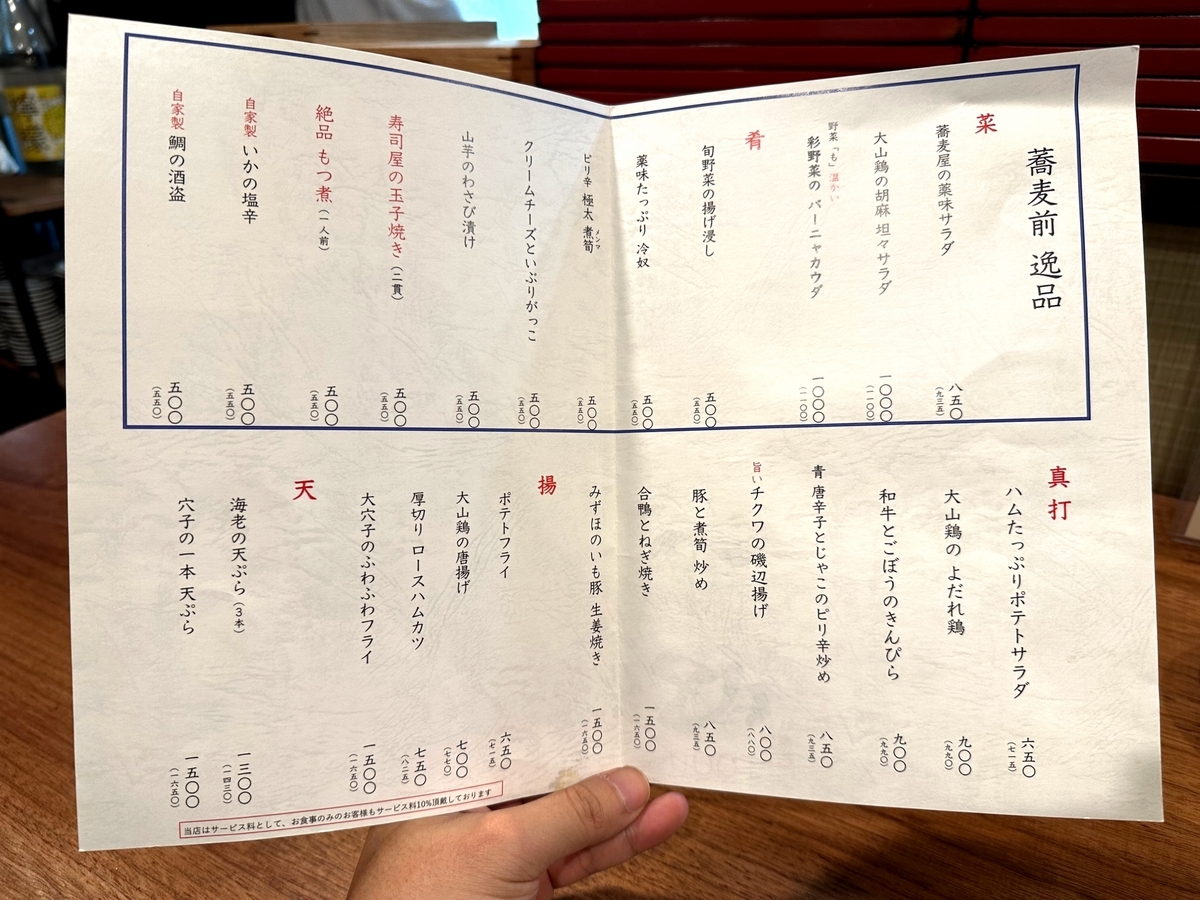 蕎麦前 逸品
菜
蕎麦屋の薬味サラダ
八五〇
(九三五)
大山鶏の胡麻 坦々サラダ
一〇〇〇
(一一〇〇)
野菜「も」温かい
彩野菜の バーニャカウダ
一〇〇〇
(一一〇〇)
肴
旬野菜の揚げ浸し
五〇〇
(五五〇)
薬味たっぷり 冷奴
五〇〇
(五五〇)
ピリ辛 極太 煮筍
メンマ
五〇〇
(五五〇)
クリームチーズといぶりがっこ
五〇〇
(五五〇)
山芋のわさび漬け
五〇〇
(五五〇)
寿司屋の玉子焼き(二貫)
五〇〇
(五五〇)
絶品 もつ煮(一人前)
五〇〇
(五五〇)
自家製 いかの塩辛
五〇〇
(五五〇)
自家製 鯛の酒盗
五〇〇
(五五〇)
真打
ハムたっぷりポテトサラダ
六五〇
(七一五)
大山鶏の よだれ鶏
九〇〇
(九九〇)
和牛とごぼうのきんぴら
九〇〇
(九九〇)
青 唐辛子とじゃこのピリ辛炒め
八五〇
(九三五)
旨いチクワの磯辺揚げ
八〇〇
(八八〇)
豚と煮筍 炒め
八五〇
(九三五)
合鴨とねぎ焼き
一五〇〇
(一六五〇)
みずほのいも豚 生姜焼き
一五〇〇
(一六五〇)
揚
ポテトフライ
六五〇
(七一五)
大山鶏の唐揚げ
七〇〇
(七七〇)
厚切り ロースハムカツ
七五〇
(八二五)
大穴子のふわふわフライ
一五〇〇
(一六五〇)
天
海老の天ぷら(3本)
一三〇〇
(一四三〇)
穴子の一本 天ぷら
一五〇〇
(一六五〇)
当店はサービス料として、お食事のみのお客様もサービス料10%頂戴しております